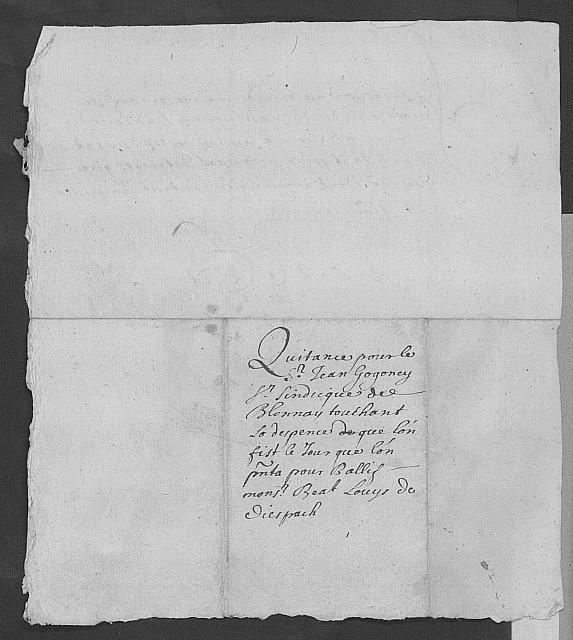 Quitance pour le
Sr. Jean Gogoney
Sr. sindicque de
Blonnay touchant
la despence de que lón
fist le Jour que lón
pnta pour Ballif
monsr. Beat Loüys de
Diespach